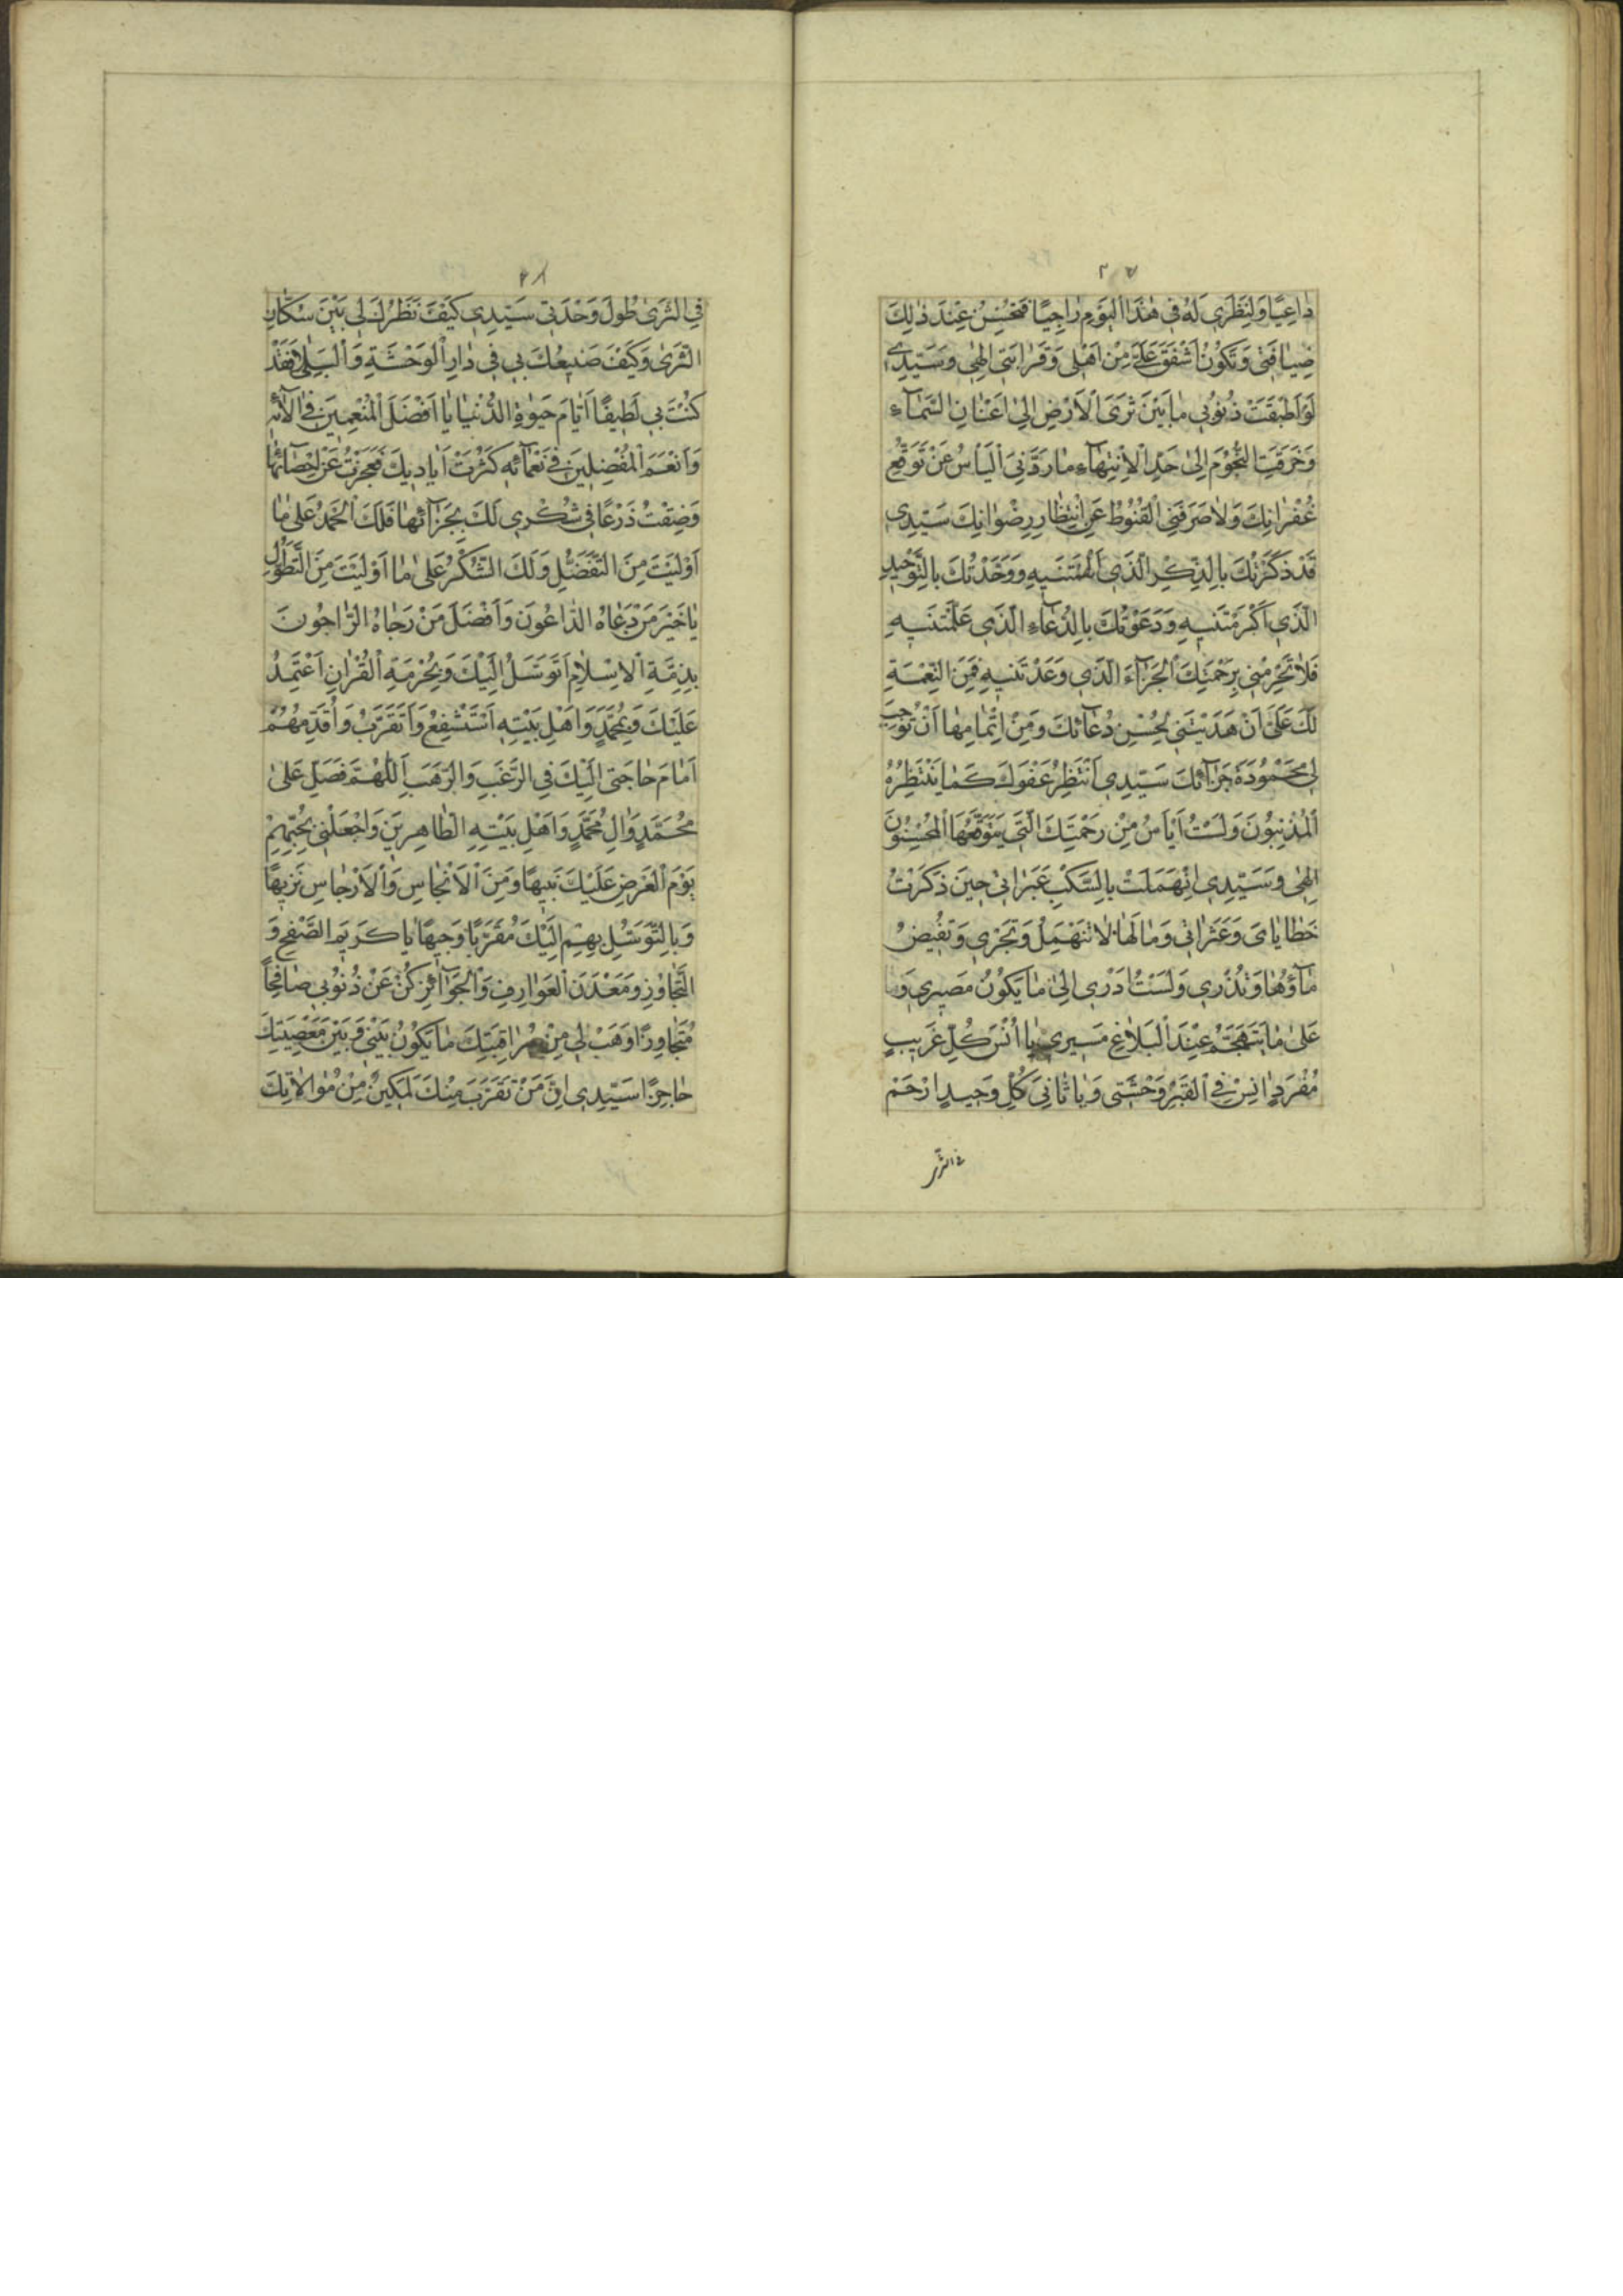 ٣٧
دٰاعِيًا وَلِنَظَرِي لَهُ فِي هٰذَا الْيَوْمِ رٰاجِيًا فَتُحْسِنُ عِنْدَ ذٰلِكَ
ضِيٰافَتِي وَتَكُونُ اَشْفَقَ عَلَيَّ مِنْ اَهْلِي وَقَرٰابَتِي اِلٰهِي وَسَيِّدِي
لَوْ اَطْبَقَتْ ذُنُوبِي مٰا بَيْنَ ثَرَى الْاَرْضِ اِلىٰ اَعْنٰانِ السَّمٰآءِ
وَخَرَقَتِ النُّجُوْمَ اِلىٰ حَدِّ الْاِنْتِهٰآءِ مٰا رَدَّنِيَ الْيَاْسُ عَنْ تَوَقُّعِ
غُفْرٰانِكَ وَلٰا صَرَفَنِي الْقُنُوطُ عَنِ انْتِظٰارِ رِضْوٰانِكَ سَيِّدِي
قَدْ ذَكَرْتُكَ بِالذِّكْرِ الَّذِي اَلْهَمْتَنِيهِ وَوَحَّدْتُكَ بِالتَّوْحِيدِ
الَّذِي اَكْرَمْتَنِيهِ وَدَعَوْتُكَ بِالدُّعٰآءِ الَّذِي عَلَّمْتَنِيهِ
فَلٰا تَحْرِمْنِي بِرَحْمَتِكَ الْجَزٰآءَ الَّذِي وَعَدْتَنِيهِ فَمِنَ النِّعْمَةِ
لَكَ عَلَيَّ اَنْ هَدَيْتَنِي بِحُسْنِ دُعٰآئِكَ وَمِنْ اِتْمٰامِهٰا اَنْ تُوجِبَ
لِي مَحْمُودَةَ جَزٰآئِكَ سَيِّدِي اَنْتَظِرُ عَفْوَكَ كَمٰا يَنْتَظِرُهُ
الْمُذْنِبُونَ وَلَسْتُ اَيْاَسُ مِنْ رَحْمَتِكَ الَّتِي يَتَوَقَّعُهَا الْمُحْسِنُونَ
اِلٰهِي وَسَيِّدِي اِنْهَمَلَتْ بِالسَّكْبِ عَبَرٰاتِي حِينَ ذَكَرْتُ
خَطٰايٰايَ وَعَثَرٰاتِي وَمٰا لَهٰا لٰا تَنْهَمِلُ وَتَجْرِي وَتَفِيضُ
مٰآؤُهٰا وَتَذْرِي وَلَسْتُ اَدْرِي اِلىٰ مٰا يَكُونُ مَصِيرِي وَ
عَلىٰ مٰا يَتَهَجَّمُ عِنْدَ الْبَلٰاغِ مَسِيرِي يٰا اُنْسَ كُلِّ غَرِيبٍ
مُفْرَدٍ اٰنِسْ فِي الْقَبْرِ وَحْشَتِي وَيٰا ثٰانِيَ كُلِّ وَحِيدٍ اِرْحَمْ
في الثرى
٣٨
فِي الثَّرىٰ طُولَ وَحْدَتِي سَيِّدِي كَيْفَ نَظَرُكَ لِي بَيْنَ سُكّٰانِ
الثَّرىٰ وَكَيْفَ صَنِيعُكَ بِي فِي دٰارِ الْوَحْشَةِ وَالْبَلىٰ فَقَدْ
كُنْتَ بِي لَطِيفًا اَيّٰامَ حَيٰوةِ الدُّنْيٰا يٰا اَفْضَلَ الْمُنْعِمِينَ فِي اٰلٰائِهِ
وَاَنْعَمَ الْمُفْضِلِينَ فِي نَعْمٰآئِهِ كَثُرَتْ اَيٰادِيكَ فَعَجَزْتُ عَنْ اِحْصٰآئِهٰا
وَضِقْتُ ذَرْعًا فِي شُكْرِي لَكَ بِجَزٰآئِهٰا فَلَكَ الْحَمْدُ عَلىٰ مٰا
اَوْلَيْتَ مِنَ التَّفَضُّلِ وَلَكَ الشُّكْرُ عَلىٰ مٰا اَوْلَيْتَ مِنَ التَّطَوُّلِ
يٰا خَيْرَ مَنْ دَعٰاهُ الدّٰاعُونَ وَاَفْضَلَ مَنْ رَجٰاهُ الرّٰاجُونَ
بِذِمَّةِ الْاِسْلٰامِ اَتَوَسَّلُ اِلَيْكَ وَبِحُرْمَةِ الْقُرْاٰنِ اَعْتَمِدُ
عَلَيْكَ وَبِمُحَمَّدٍ وَاَهْلِ بَيْتِهِ اَسْتَشْفِعُ وَاَتَقَرَّبُ وَاُقَدِّمُهُمْ
اَمٰامَ حٰاجَتِي اِلَيْكَ فِي الرَّغَبِ وَالرَّهَبِ اَللّٰهُمَّ فَصَلِّ عَلىٰ
مُحَمَّدٍ وَاٰلِ مُحَمَّدٍ وَاَهْلِ بَيْتِهِ الطّٰاهِرِينَ وَاجْعَلْنِي بِحُبِّهِمْ
يَوْمَ الْعَرْضِ عَلَيْكَ نَبِيهًا وَمِنَ الْاَنْجٰاسِ وَالْاَرْجٰاسِ نَزِيهًا
وَبِالتَّوَسُّلِ بِهِمْ اِلَيْكَ مُقَرَّبًا وَجِيهًا يٰا كَرِيمَ الصَّفْحِ وَ
التَّجٰاوُزِ وَمَعْدَنَ الْعَوٰارِفِ وَالْجَوٰآئِزِ كُنْ عَنْ ذُنُوبِي صٰافِحًا
مُتَجٰاوِزًا وَهَبْ لِي مِنْ مُرٰاقِبَتِكَ مٰا يَكُونُ بَيْنِي وَبَيْنَ مَعْصِيَتِكَ
حٰاجِزًا سَيِّدِي اِنَّ مَنْ تَقَرَّبَ مِنْكَ لَمَكِينٌ مِنْ مُوٰالٰاتِكَ